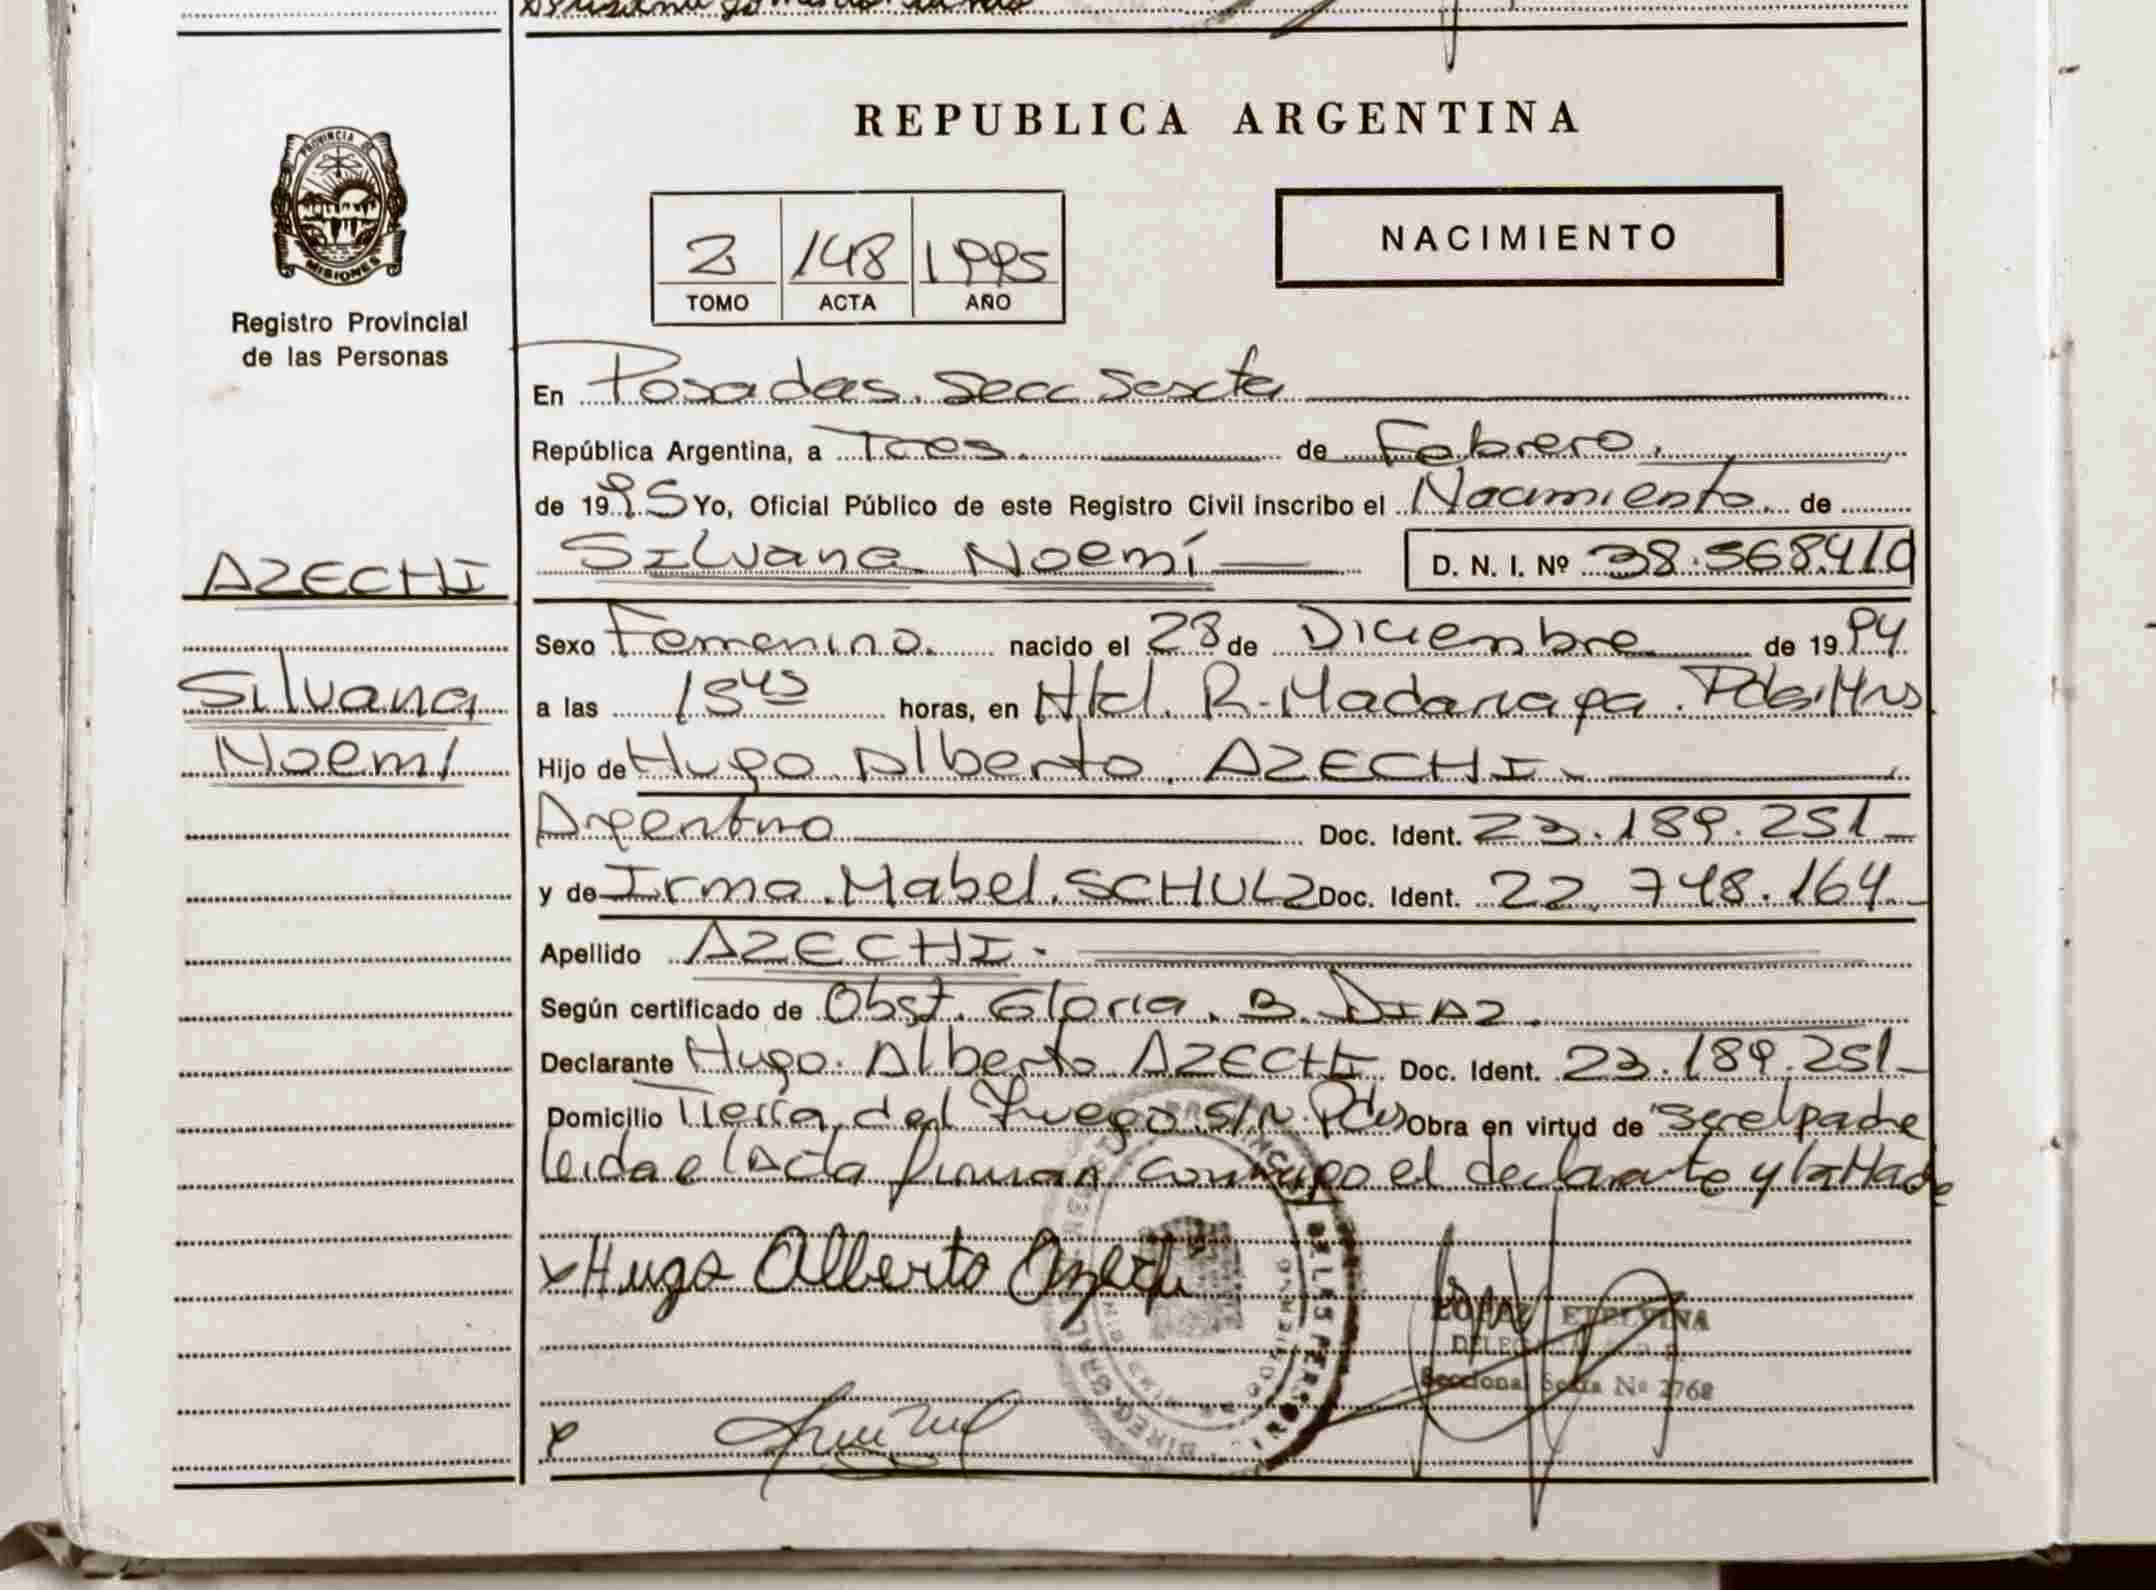 PROVINCIA DE
MISIONES
Registro Provincial
de las Personas
AZECHI
Silvana
Noemí
REPUBLICA ARGENTINA
2 148 1995
TOMO ACTA AÑO
NACIMIENTO
En Posadas. Secc Sexta
República Argentina, a Tres. de Febrero.
de 1995 Yo, Oficial Público de este Registro Civil inscribo el Nacimiento. de
Silvana Noemí D. N. I. Nº 38.568.410
Sexo Femenino. nacido el 28 de Diciembre de 1994
a las 15 45 horas, en Htal. R. Madariaga. Pdas. Mns
Hijo de Hugo Alberto. AZECHI.
Argentino Doc. Ident. 23.189.251
y de Irma. Mabel. SCHULZ Doc. Ident. 22.748.164
Apellido AZECHI.
Según certificado de Obst. Gloria. B. DIAZ.
Declarante Hugo. Alberto AZECHI Doc. Ident. 23.189.251
Domicilio Tierra del Fuego S/N. Pdas Obra en virtud de ser el padre
leida el Acta firman conmigo el declarante y la Madre
x Hugo Alberto Azechi
ETELVINA
Seccional Sexta Nº 2768
x